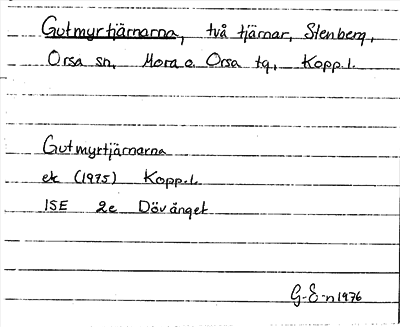 Gutmyrtjärnarna, två tjärnar, Stenberg,
Orsa sn, Mora o. Orsa tg, Kopp.l.
Gutmyrtjärnarna
ek (1975) Kopp.l.
15E 2e Dövånget
G-E-n 1976